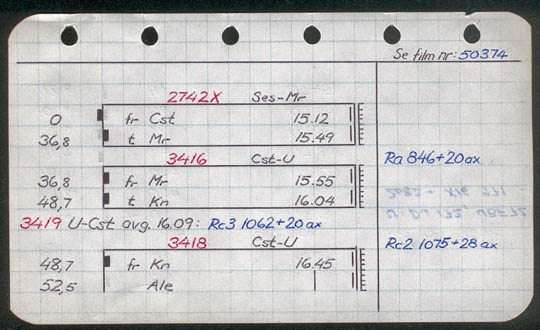 Se film nr: 50374
2742X Ses-Mr
0 fr Cst 15.12
36,8 t Mr 15.49
3416 Cst-U Ra 846+20ax
36,8 fr Mr 15.55
48,7 t Kn 16.04
3419 U-Cst avg. 16.09: Rc3 1062+20 ax
3418 Cst-U Rc2 1075+28 ax
48,7 fr Kn 16.45
52,5 Ale